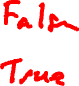 False
True